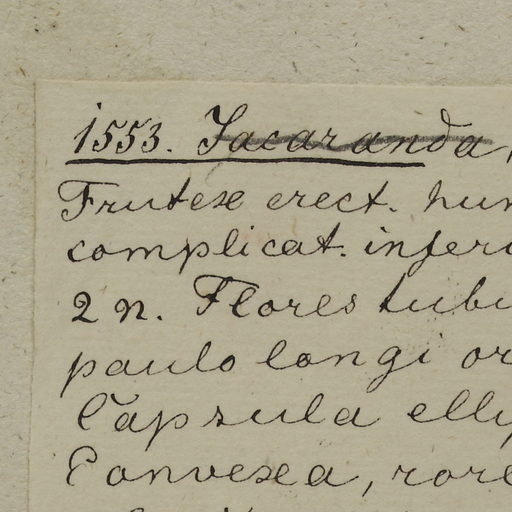 1553. Jacaranda,
Frutex erect. hum
complicat. infer
2 n. Flores tubu
paulo longi or
Capsula elly
Convexa, rore